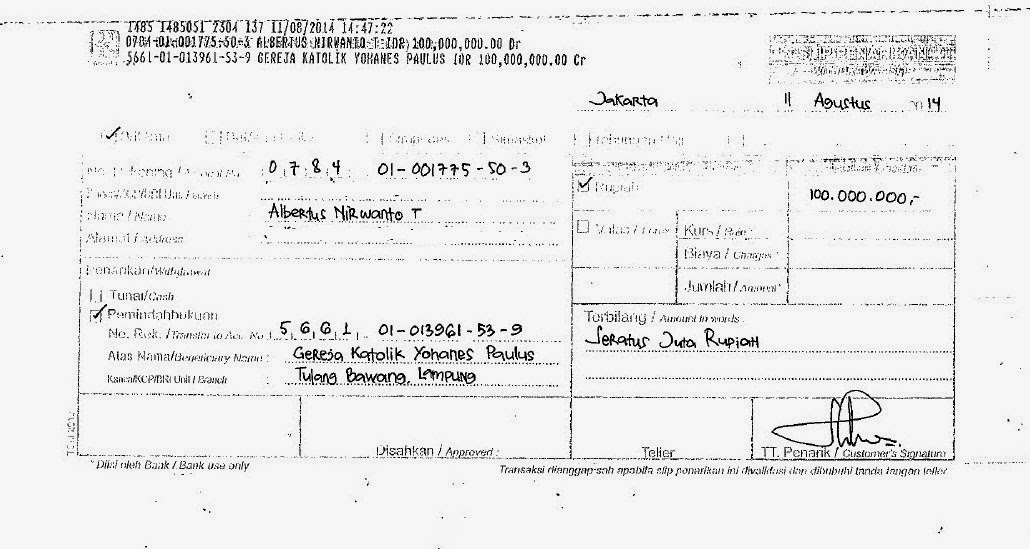 1485 1485051 2304 137 11/08/2014 14:47:22
0784-01-001775-50-3 ALBERTUS NIRWANTO T IDR 100,000,000.00 Dr
5661-01-013961-53-9 GEREJA KATOLIK YOHANES PAULUS IDR 100,000,000.00 Cr
Jakarta 11 Agustus 2014
0784 01-001775-50-3
Rupiah 100.000.000,-
Nama / Name Albertus Nirwanto T
Valas / Kurs / Rate
Alamat / Address
Biaya / Charges
Penarikan/Withdrawal
Jumlah / Amount
Tunai/Cash
Pemindahbukuan
No. Rek. / Transfer to Acc. No. 5661 01-013961-53-9
Terbilang / Amount in words :
Seratus Juta Rupiah
Atas Nama/Beneficiary Name : Gereja Katolik Yohanes Paulus
Kanca/KCP/BRI Unit / Branch : Tulang Bawang, Lampung
Disahkan / Approved :
Teller
TT. Penarik / Customer's Signature
* Diisi oleh Bank / Bank use only
Transaksi dianggap sah apabila slip penarikan ini divalidasi dan dibubuhi tanda tangan teller